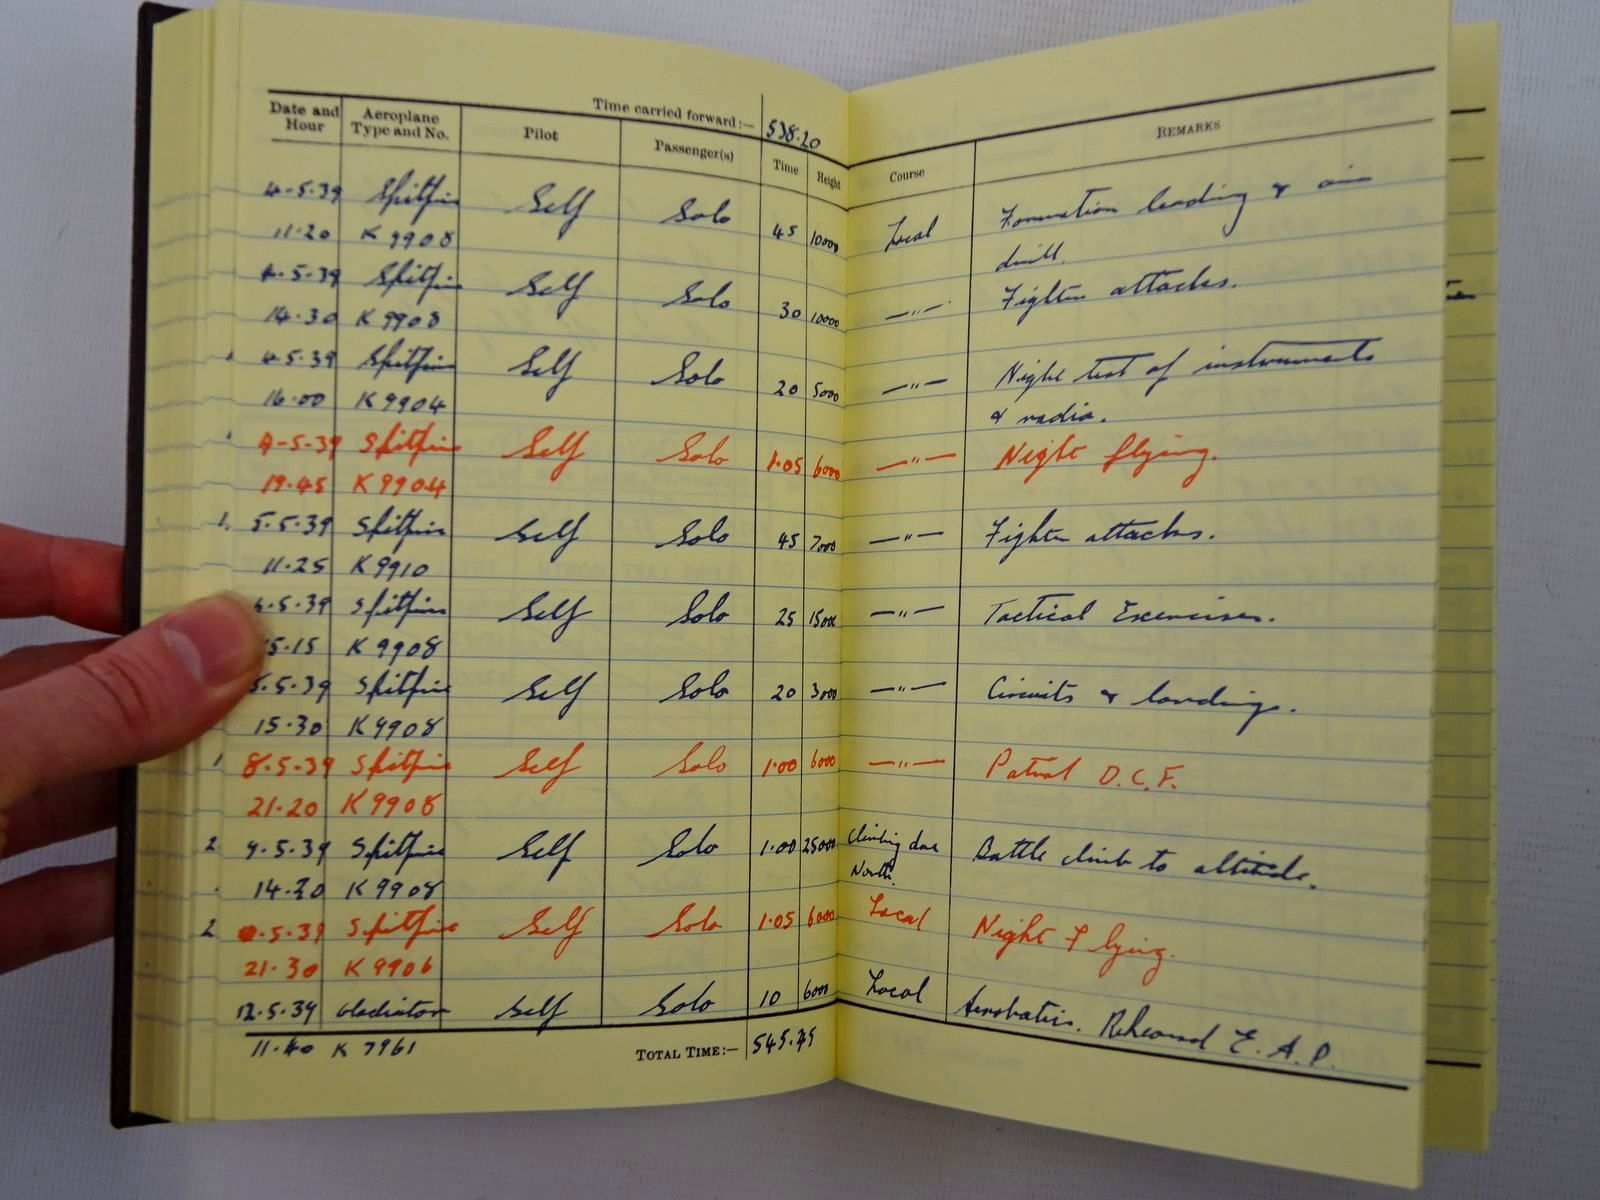 Time carried forward:— 538.20
Date and Hour Aeroplane Type and No. Pilot Passenger(s) Time Height Course REMARKS
4-5-39 Spitfire Self Solo 45 10000 Local Formation leading & air
11.20 K 9908 drill.
4.5.39 Spitfire Self Solo 30 10000 —"— Fighter attacks.
14.30 K 9908
4.5.39 Spitfire Self Solo 20 5000 —"— Night test of instruments
16.00 K 9904 & radio.
4-5-39 Spitfire Self Solo 1.05 6000 —"— Night flying.
19.45 K 9904
1. 5.5.39 Spitfire Self Solo 45 7000 —"— Fighter attacks.
11.25 K 9910
5.39 Spitfire Self Solo 25 1500 —"— Tactical Exercises.
5.15 K 9908
5.5.39 Spitfire Self Solo 20 3000 —"— Circuits & landings.
15.30 K 9908
1 8.5.39 Spitfire Self Solo 1.00 6000 —"— Patrol O.C.F.
21.20 K 9908
2 9.5.39 Spitfire Self Solo 1.00 25000 Climbing due Battle climb to altitude.
14.20 K 9908 North.
2 .5.39 Spitfire Self Solo 1.05 6000 Local Night Flying.
21.30 K 9906
12.5.39 Gladiator Self Solo 10 6000 Local Aerobatics. Rehearsal E.A.D.
11.40 K 7961 TOTAL TIME:— 545.45